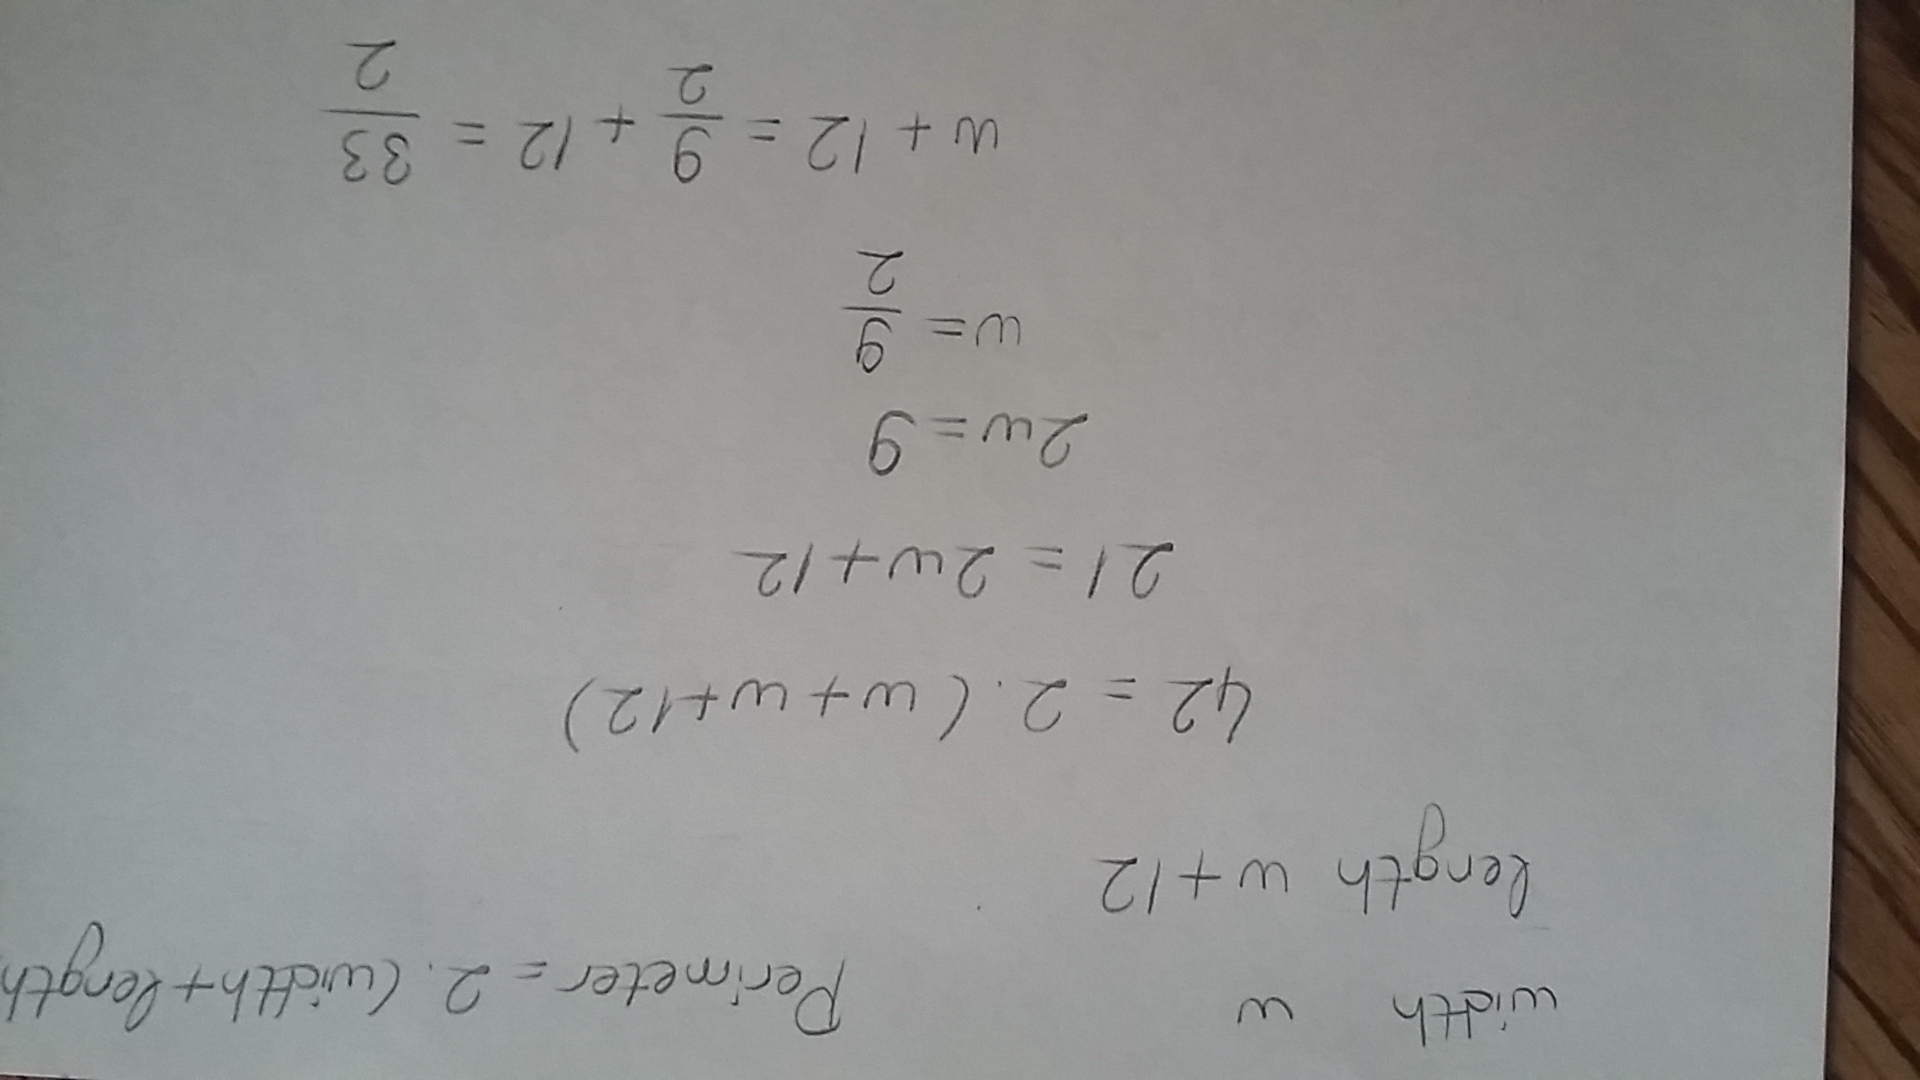 width w Perimeter = 2. (width + length
length w + 12
42 = 2. (w + w + 12)
21 = 2w + 12
2w = 9
w = 9/2
w + 12 = 9/2 + 12 = 33/2